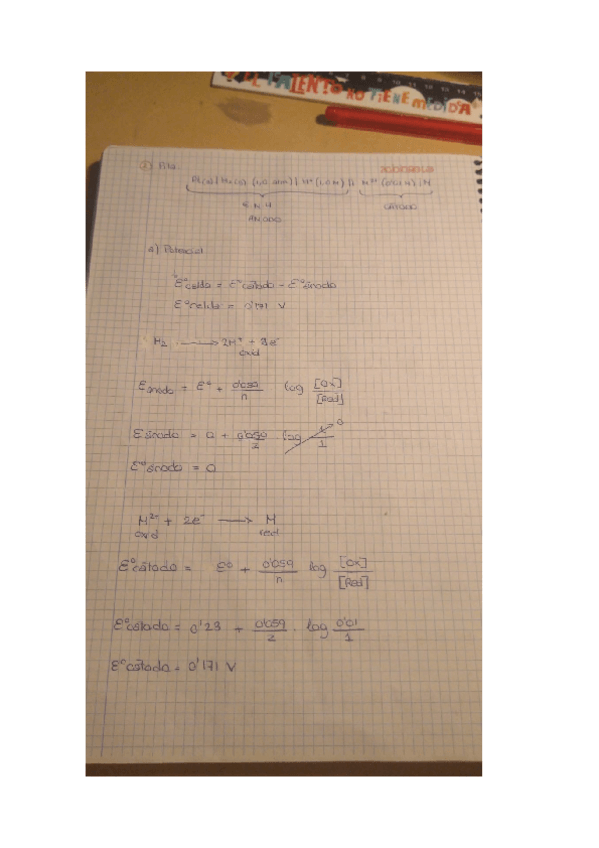 EL TALENTO NO TIENE MEDIDA
2) Pila
Pt(s) | H₂(g) (1,0 atm) | H⁺ (1,0 M) || M²⁺ (0'01 M) | M
E N H
CÁTODO
ÁNODO
A) Potencial
E°celda = E°cátodo - E°ánodo
E°celda = 0'171 V
H₂ → 2H⁺ + 2e⁻
oxid
Eánodo = E° + 0'059/n log [Ox]/[Red]
Eánodo = 0 + 0'059/2 log 1/1 0
E°ánodo = 0
M²⁺ + 2e⁻ → M
oxid red
E°cátodo = E° + 0'059/n log [Ox]/[Red]
E°cátodo = 0'23 + 0'059/2 · log 0'01/1
E°cátodo = 0'171 V